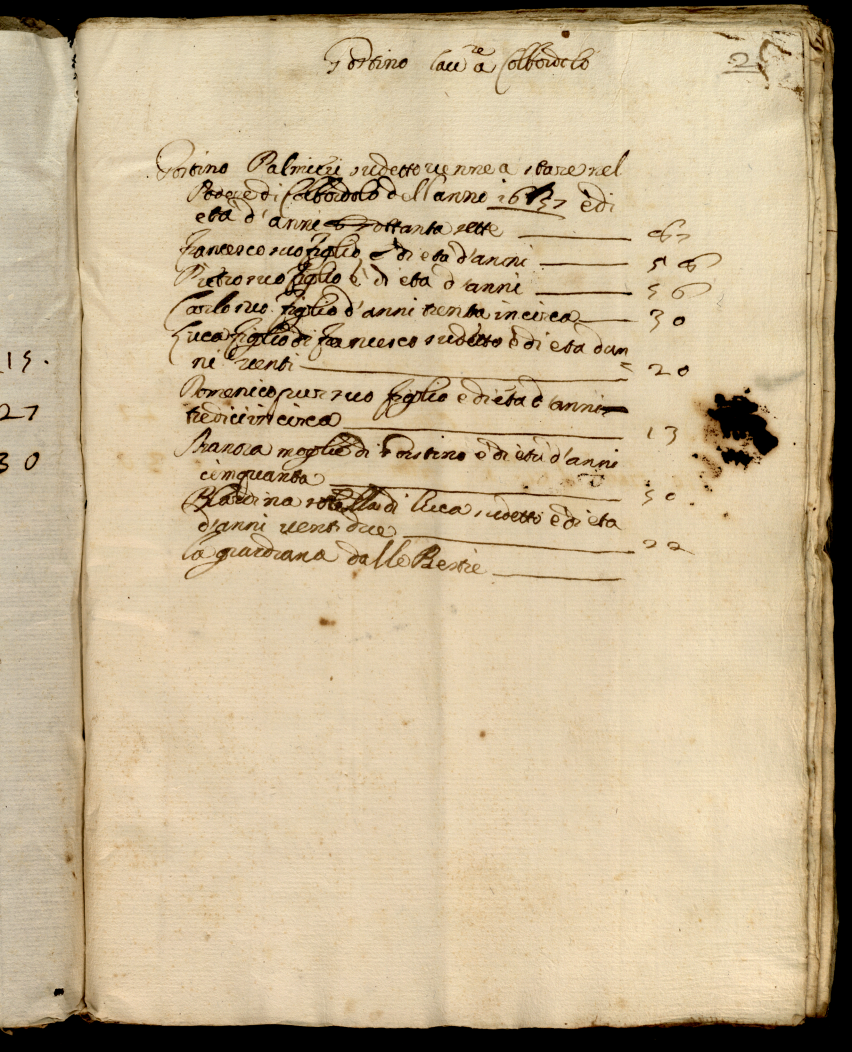 2
Postino lau.re a Colbordolo
Postino Palmieri sudetto venne a stare nel
Podere di Colbordolo dell'anno 1657 è di
età d'anni ottanta sette 87
Francesco suo figlio è di eta d'anni 56
Pietro suo figlio è di eta d'anni 56
Carlo suo figlio d'anni trenta incirca 30
Luca figlio di Francesco sudetto è di eta d'an
ni venti 20
Domenico pur suo figlio è di età d'anni
tredici incirca 13
moglie di Postino è di età d'anni
cinquanta 50
sorella di Luca sudetto è di eta
d'anni venti due 22
la guardiana dalle Bestie
15.
27
30